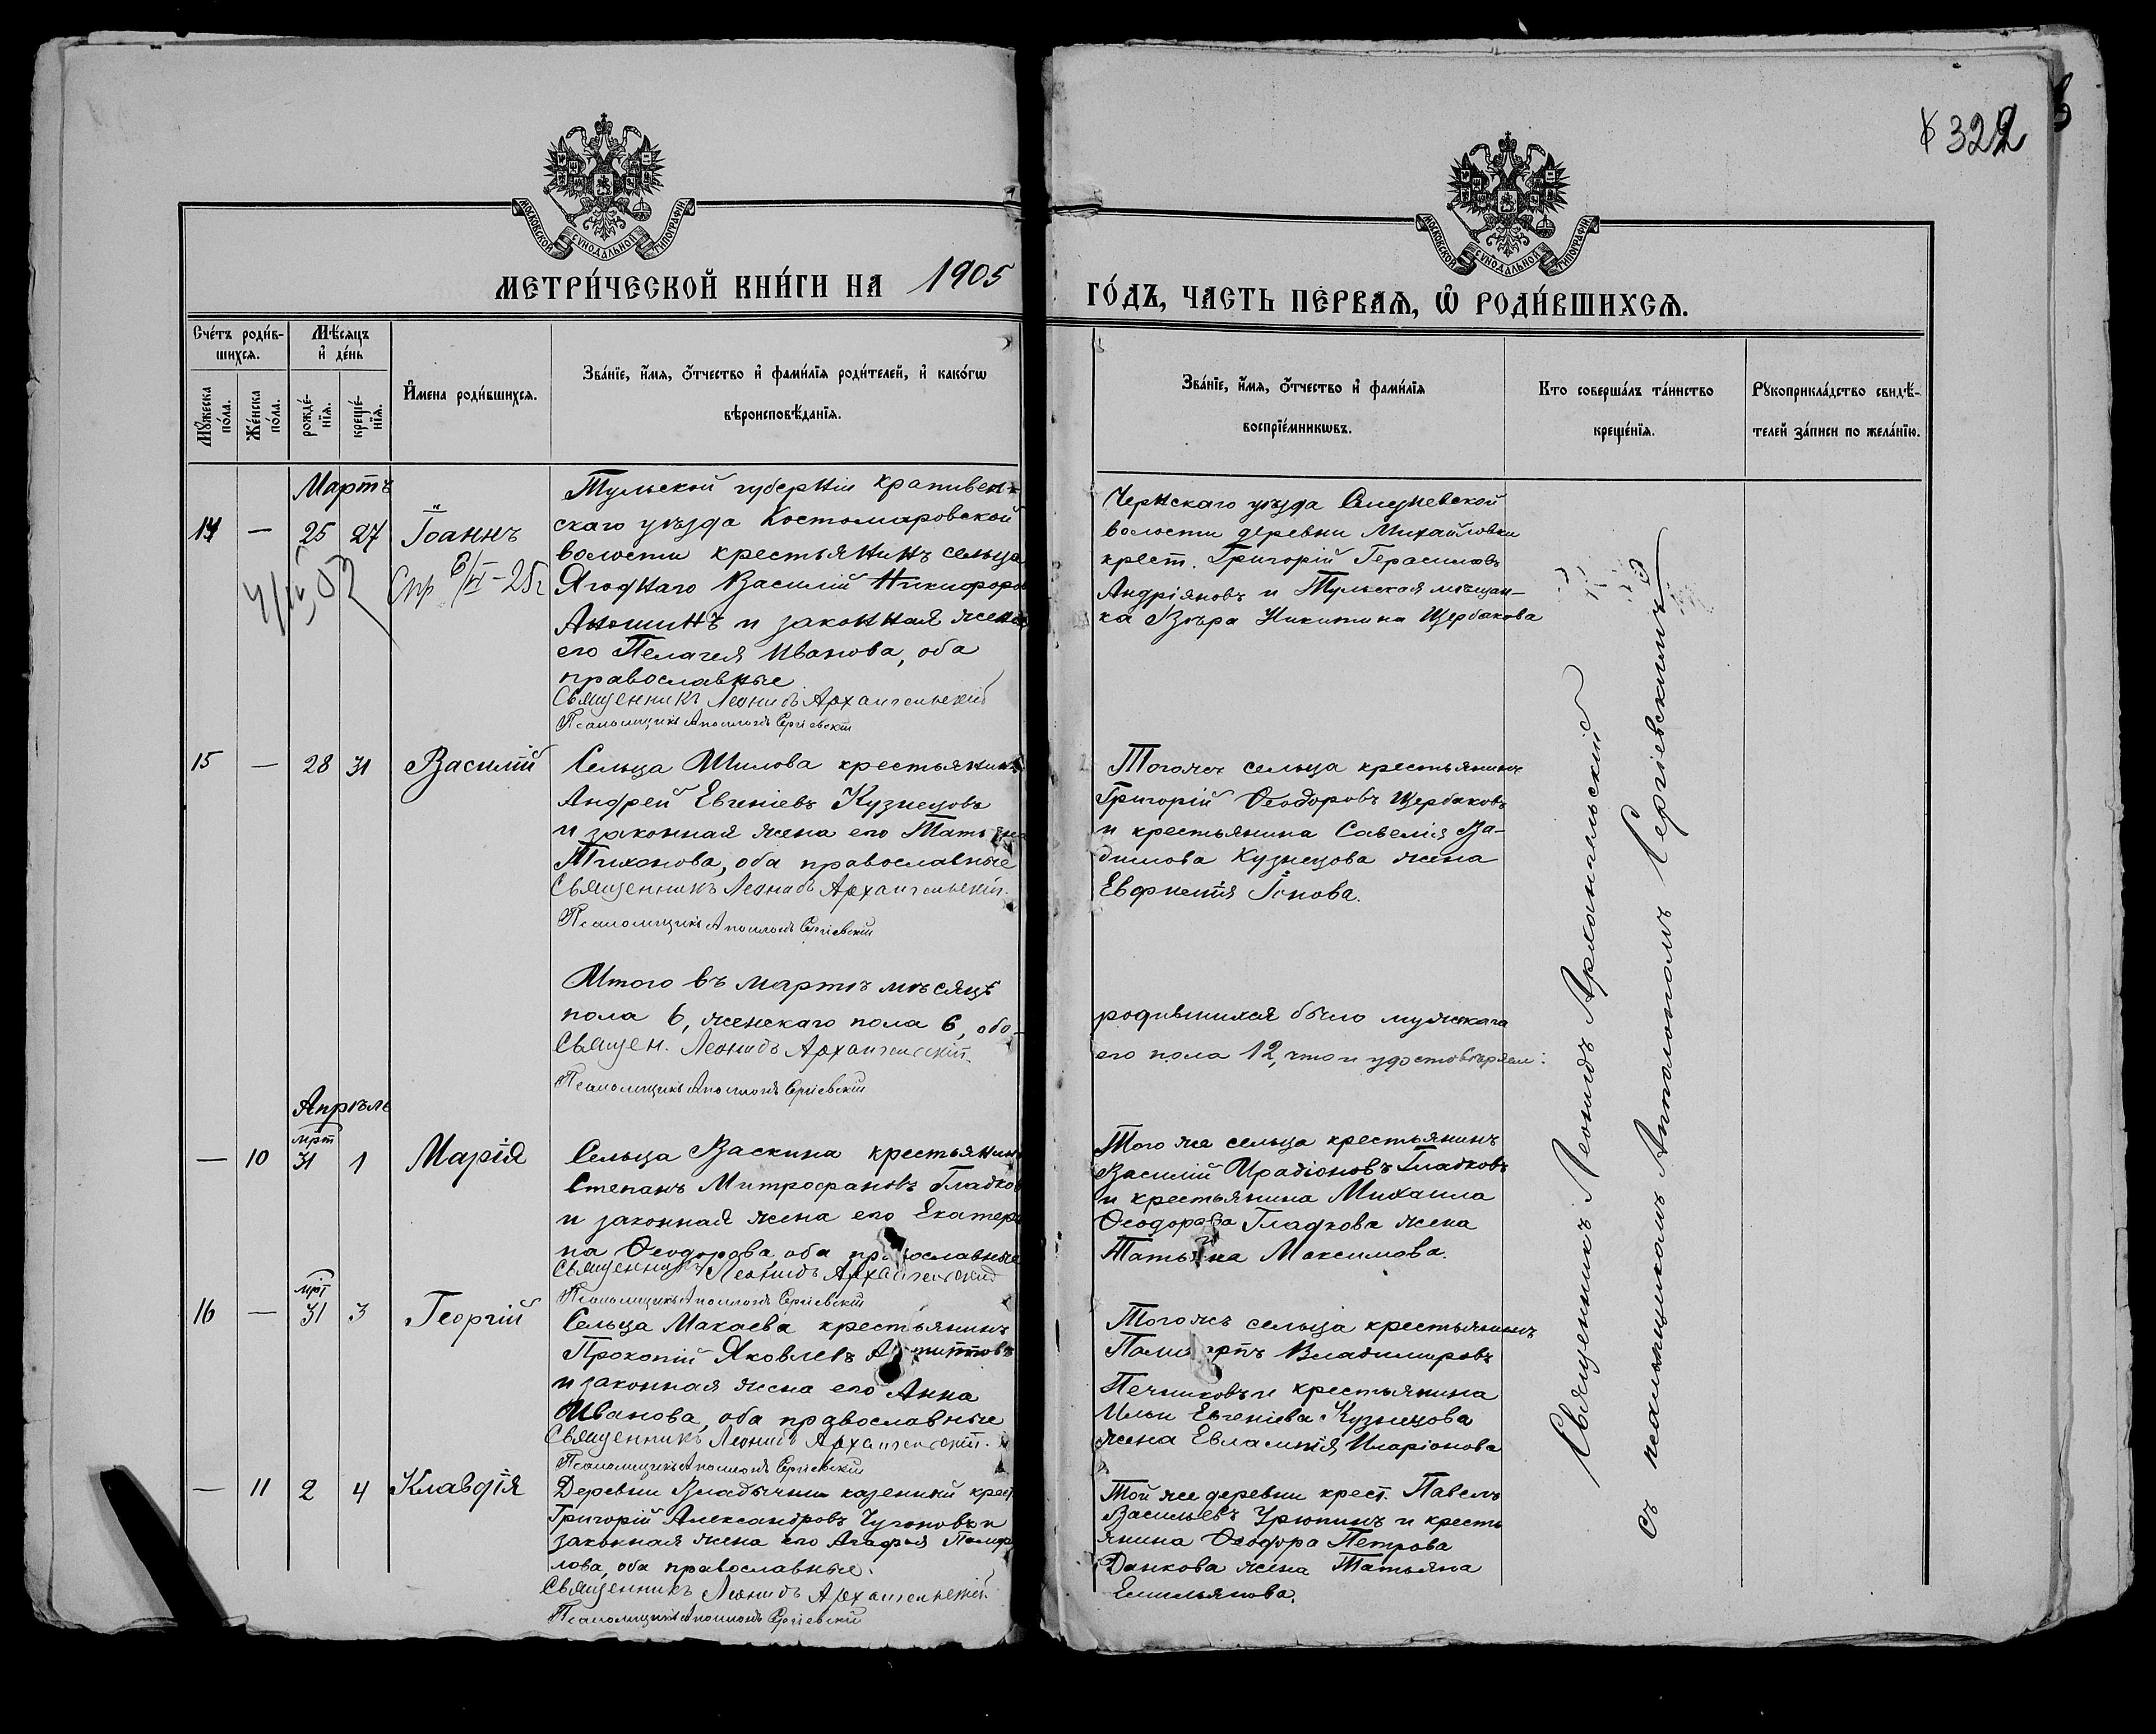 322
МОСКОВСКОЙ СУНОДАЛЬНОЙ ТИПОГРАФІИ
МОСКОВСКОЙ СУНОДАЛЬНОЙ ТИПОГРАФІИ
МЕТРИ́ЧЕСКОЙ КНИ́ГИ НА 1905
ГО́ДЪ, ЧАСТЬ ПЕ́РВАѦ, Ѡ РОДИ́ВШИХСѦ.
Сче́тъ роди́в-
шихсѧ.
Мꙋ́жеска по́ла.
Же́нска по́ла.
Мѣ́сѧцъ
и҆ де́нь
рожде́-
нїѧ.
креще́-
нїѧ.
И҆мена роди́вшихсѧ.
Зва́нїе, и҆́мѧ, ѻ҆́тчество и҆ фами́лїѧ роди́телей, и҆ како́гѡ
вѣроисповѣ́данїѧ.
Зва́нїе, и҆́мѧ, ѻ҆́тчество и҆ фами́лїѧ
воспрїе́мникѡвъ.
Кто соверша́лъ та́инство
креще́нїѧ.
Рꙋкоприкла́дство свидѣ́-
телей за́писи по жела́нїю.
Мартъ
14 — 25 27 Іоаннъ
Тульской губерніи Крапивен-
скаго уѣзда Костомаровской
волости крестьянинъ сельца
Ягоднаго Василій Никифоров
Аношинъ и законная жена
его Пелагея Иванова, оба
православные
Священникъ Леонидъ Архангельскій
Псаломщикъ Аполлонъ Сергіевскій
Чернскаго уѣзда
волости деревни Михайловки
крест. Григорій Герасимовъ
Андріяновъ и Тульская мѣщан-
ка Вѣра Никитина Щербакова
15 — 28 31 Василій
Сельца Шилова крестьянинъ
Андрей Евгеніевъ Кузнецовъ
и законная жена его Татьяна
Тихонова, оба православные
Священникъ Леонидъ Архангельскій.
Псаломщикъ Аполлонъ Сергіевскій
Тогожъ сельца крестьянинъ
Григорій Ѳеодоровъ Щербаковъ
и крестьянина Савелія Ва-
димова Кузнецова жена
Евфимія
Итого въ мартѣ мѣсяцѣ
родившихся было мужскаго
пола 6, женскаго пола 6, обо-
его пола 12, что и удостовѣряем:
Священ. Леонидъ Архангельскій.
Псаломщикъ Аполлонъ Сергіевскій
Апрѣль
мрт
— 10 31 1 Марія
Сельца Васкина крестьянинъ
Степанъ Митрофановъ Гладков
и законная жена его Екатер
на Ѳеодорова, оба православные
Священникъ Леонидъ Архангельскій
Псаломщикъ Аполлонъ Сергіевскій
Того же сельца крестьянинъ
Василій Ирадіоновъ Гладковъ
и крестьянина Михаила
Ѳеодорова Гладкова жена
Татьяна Максимова.
мрт
16 — 31 3 Георгій
Сельца Макаева крестьянинъ
Прокопій Яковлевъ
и законная жена его Анна
Иванова, оба православные
Священникъ Леонидъ Архангельскій.
Псаломщикъ Аполлонъ Сергіевскій
Тогожъ сельца крестьянинъ
Владимировъ
Печниковъ и крестьянина
Ильи Евгеніева Кузнецова
жена Евлампія Иларіонова
— 11 2 4 Клавдія
Деревни Владычни казенный крест.
Григорій Александровъ Чугоновъ и
законная жена его Агафья
лова, оба православные.
Священникъ Леонидъ Архангельскій.
Псаломщикъ Аполлонъ Сергіевскій
Той же деревни крест. Павелъ
Васильевъ Урюпинъ и кресть
янина Ѳеодора Петрова
Данкова жена Татьяна
Емельянова.
Священникъ Леонидъ Архангельскій
съ псаломщикомъ Апполономъ Сергіевскимъ